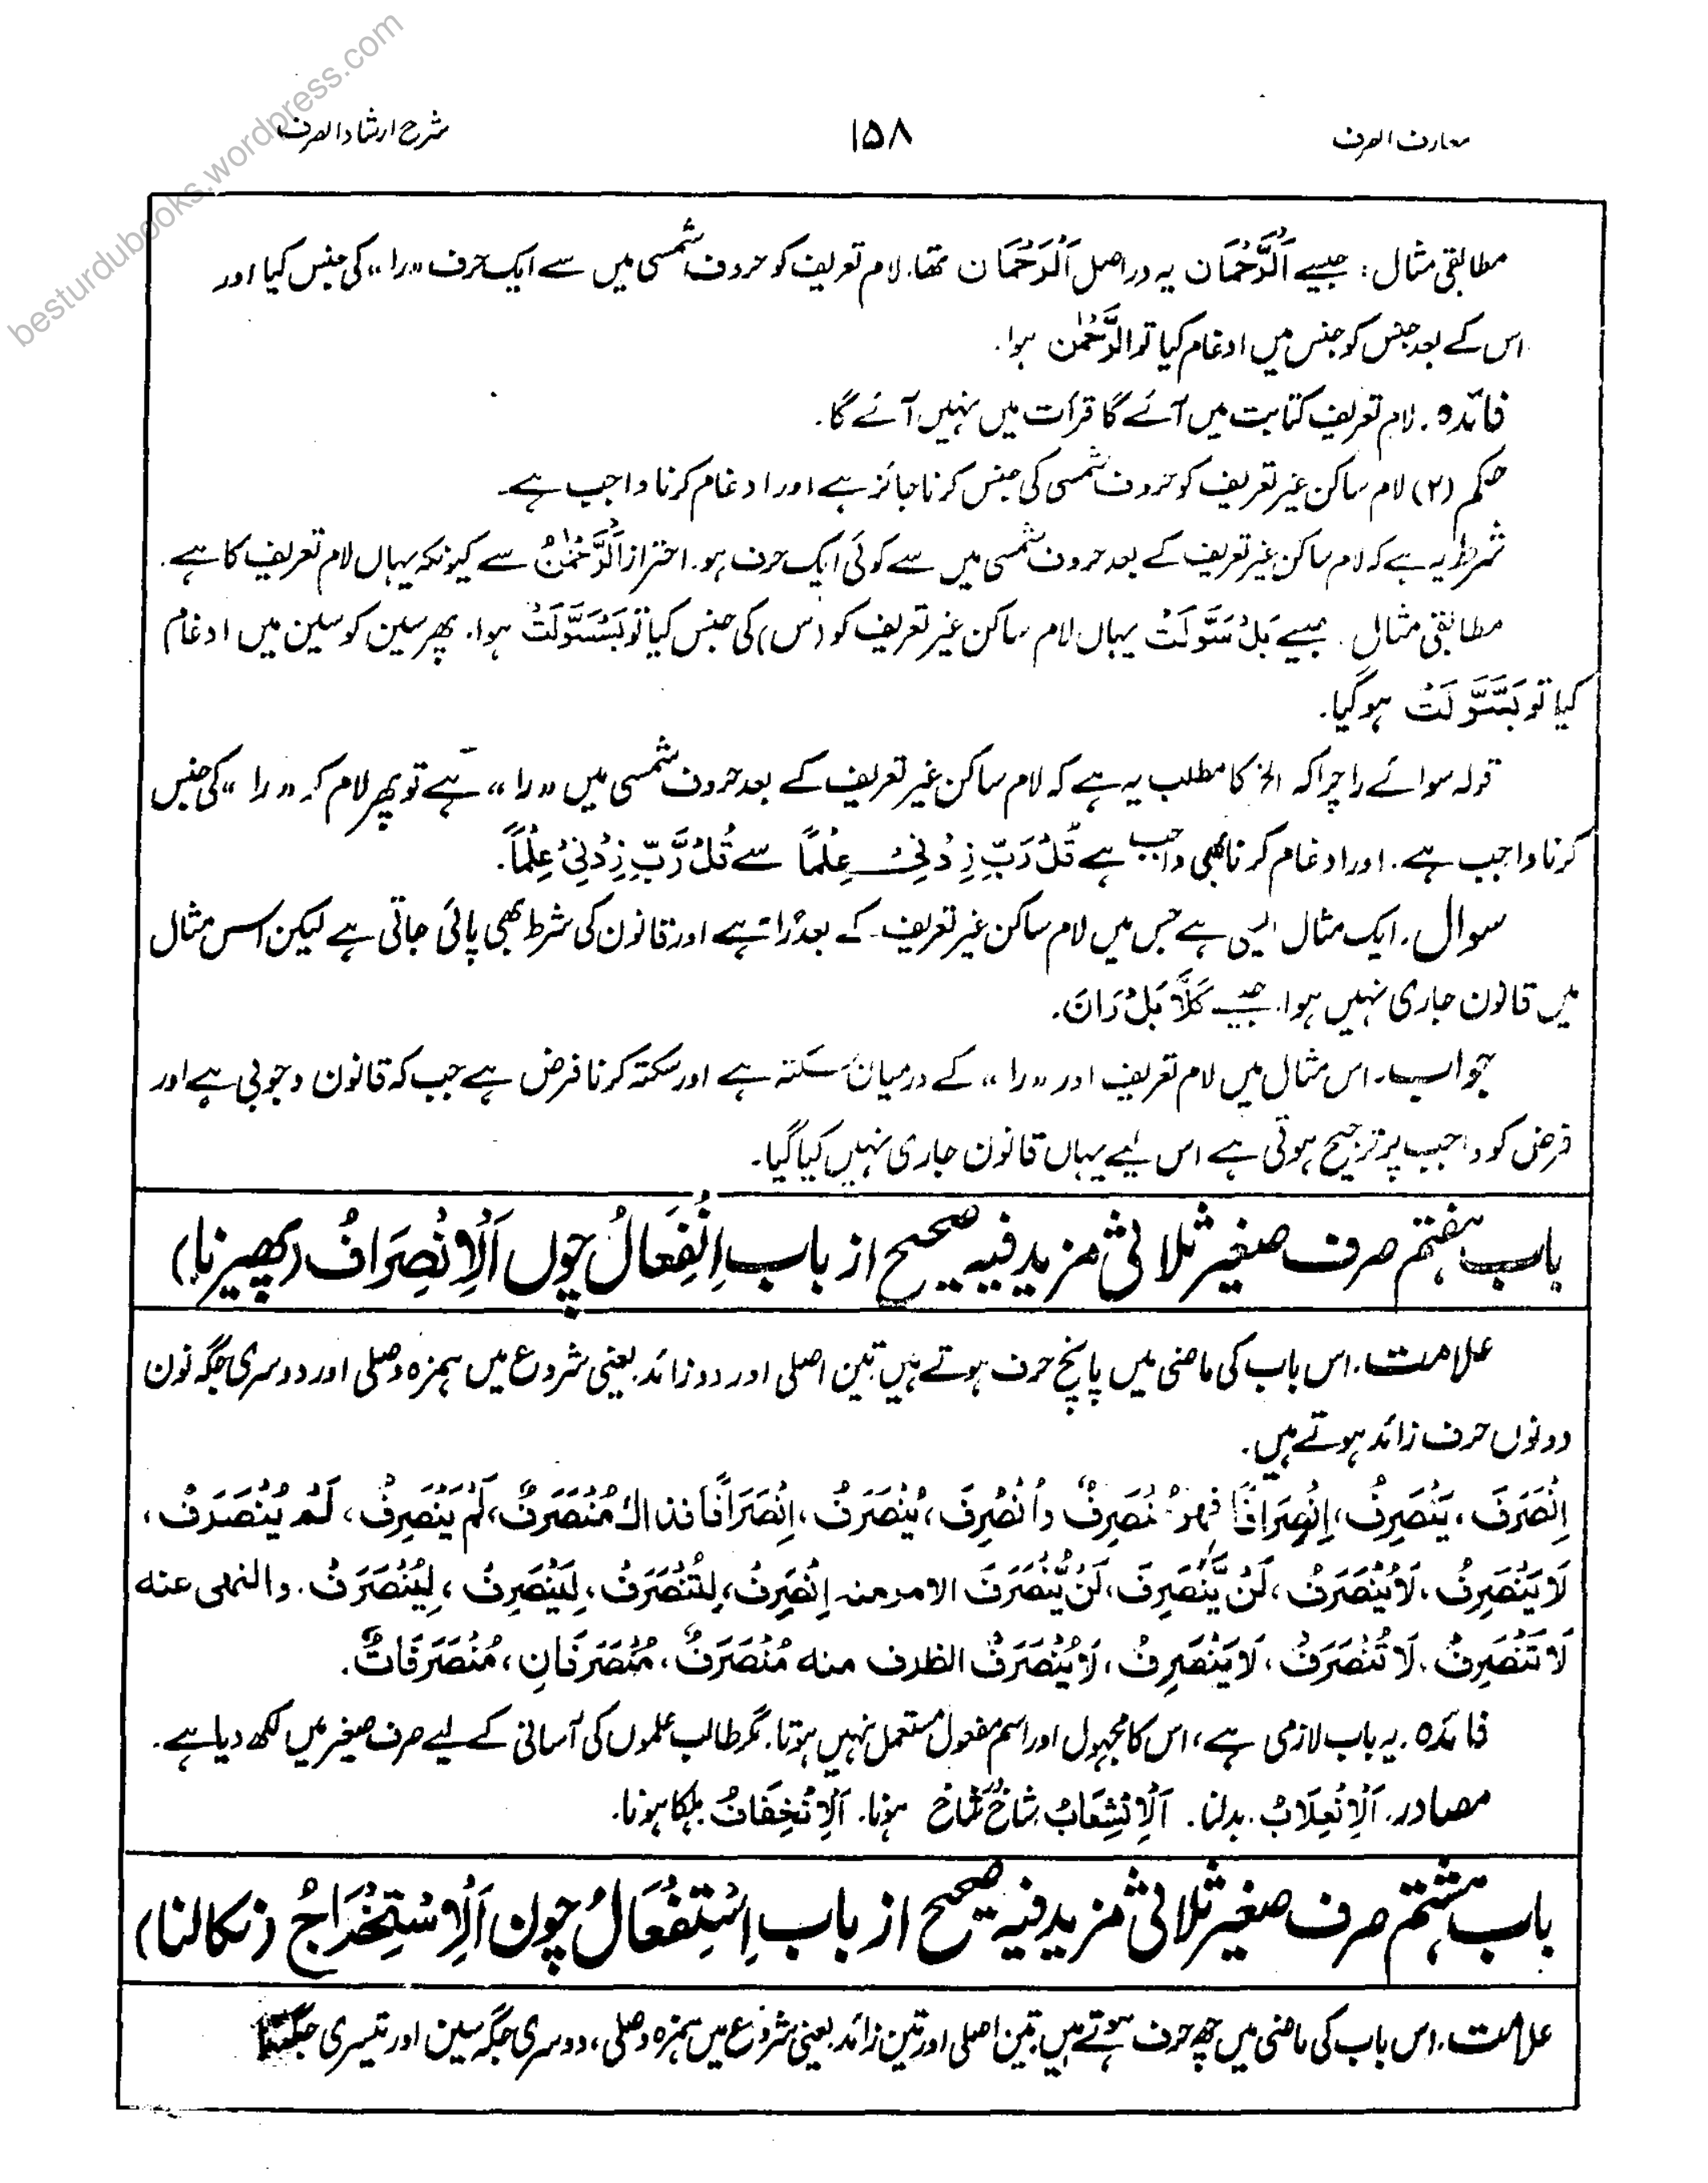 معارف الصرف
۱۵۸
شرح ارشاد الصرف
besturdubooks.wordpress.com
مطابقی مثال : جیسے اَلرَّحْمَان یہ دراصل اَلْرَحْمَان تھا، لام تعریف کو حروف شمسی میں سے ایک حرف «را» کی جنس کیا اور
اس کے بعد جنس کو جنس میں ادغام کیا تو الرَّحْمٰن ہوا۔
فائدہ ۔ لام تعریف کتابت میں آئے گا قرأت میں نہیں آئے گا۔
حکم (۲) لام ساکن غیر تعریف کو حروف شمسی کی جنس کرنا جائز ہے اور ادغام کرنا واجب ہے۔
شرط یہ ہے کہ لام ساکن غیر تعریف کے بعد حروف شمسی میں سے کوئی ایک حرف ہو۔ احتراز اَلرَّحْمٰنُ سے کیونکہ یہاں لام تعریف کا ہے۔
مطابقی مثال ۔ جیسے بَلْ سَوَّلَتْ یہاں لام ساکن غیر تعریف کو (س) کی جنس کیا تو بَسْسَوَّلَتْ ہوا۔ پھر سین کو سین میں ادغام
کیا تو بَسَّوَّلَتْ ہو گیا۔
قولہ سوائے را چرا کہ الخ کا مطلب یہ ہے کہ لام ساکن غیر تعریف کے بعد حروف شمسی میں «را» ہے تو پھر لام کو «را» کی جنس
کرنا واجب ہے۔ اور ادغام کرنا بھی واجب ہے قُلْ رَبِّ زِدْنِیْ عِلْماً سے قُلْ رَّبِّ زِدْنِیْ عِلْماً۔
سوال ۔ ایک مثال ایسی ہے جس میں لام ساکن غیر تعریف کے بعد را ہے اور قانون کی شرط بھی پائی جاتی ہے لیکن اس مثال
میں قانون جاری نہیں ہوا۔ جیسے كَلَّا بَلْ رَانَ۔
جواب ۔ اس مثال میں لام تعریف اور «را» کے درمیان سکتہ ہے اور سکتہ کرنا فرض ہے جب کہ قانون وجوبی ہے اور
فرض کو واجب پر ترجیح ہوتی ہے اس لیے یہاں قانون جاری نہیں کیا گیا۔
باب ہفتم صرف صغیر ثلاثی مزید فیہ صحیح از باب اِنْفِعَالُ چوں اَلْاِنْصِرَافُ (پھیرنا)
علامت ۔ اس باب کی ماضی میں پانچ حرف ہوتے ہیں تین اصلی اور دو زائد یعنی شروع میں ہمزہ وصلی اور دوسری جگہ نون
دونوں حرف زائد ہوتے ہیں۔
اِنْصَرَفَ ، يَنْصَرِفُ ، اِنْصِرَافًا فهو مُنْصَرِفٌ واُنْصُرِفَ ، يُنْصَرَفُ ، اِنْصَرَافًا فذاك مُنْصَرَفٌ ، لَمْ يَنْصَرِفْ ، لَمْ يُنْصَرَفْ ،
لَا يَنْصَرِفُ ، لَا يُنْصَرَفُ ، لَنْ يَّنْصَرِفَ ، لَنْ يُّنْصَرَفَ الامر منه اِنْصَرِفْ ، لِتُنْصَرَفْ ، لِيَنْصَرِفْ ، لِيُنْصَرَفْ ۔ والنهی عنه
لَا تَنْصَرِفْ ، لَا تُنْصَرَفْ ، لَا يَنْصَرِفْ ، لَا يُنْصَرَفْ الظرف منه مُنْصَرَفٌ ، مُنْصَرَفَانِ ، مُنْصَرَفَاتٌ۔
فائدہ ۔ یہ باب لازمی ہے ، اس کا مجہول اور اسم مفعول مستعمل نہیں ہوتا۔ مگر طالب علموں کی آسانی کے لیے صرف صغیر میں لکھ دیا ہے۔
مصادر ۔ اَلْاِنْقِلَابُ ۔ بدلنا ۔ اَلْاِنْشِعَابُ شاخ شاخ ہونا ۔ اَلْاِنْخِفَافُ ہلکا ہونا۔
باب ہشتم صرف صغیر ثلاثی مزید فیہ صحیح از باب اِسْتِفْعَالُ چون اَلْاِسْتِخْرَاجُ (نکالنا)
علامت ۔ اس باب کی ماضی میں چھ حرف ہوتے ہیں تین اصلی اور تین زائد یعنی شروع میں ہمزہ وصلی ، دوسری جگہ سین اور تیسری جگہ